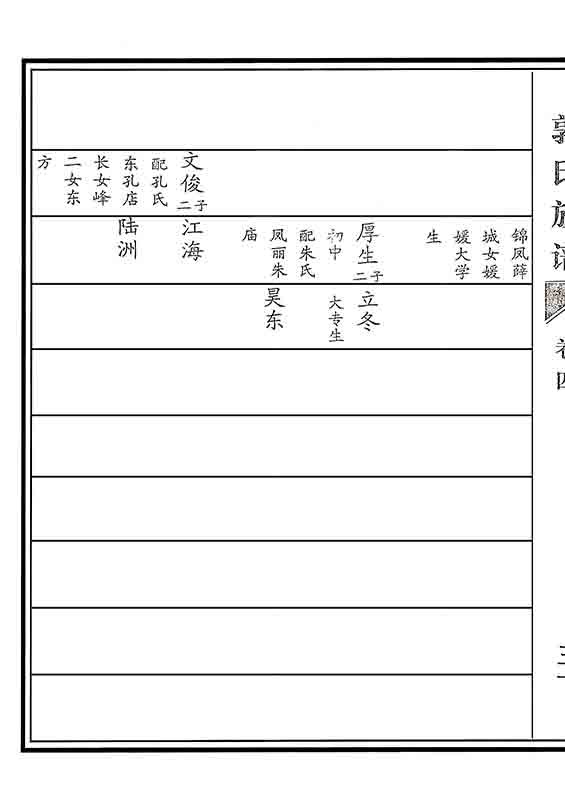 郭氏族谱
卷四
文俊
二子
配孔氏
东孔店
长女峰
二女东
方
锦凤薛
城女媛
媛大学
生
厚生
二子
初中
配朱氏
凤丽朱
庙
江海
陆洲
立冬
大专生
昊东